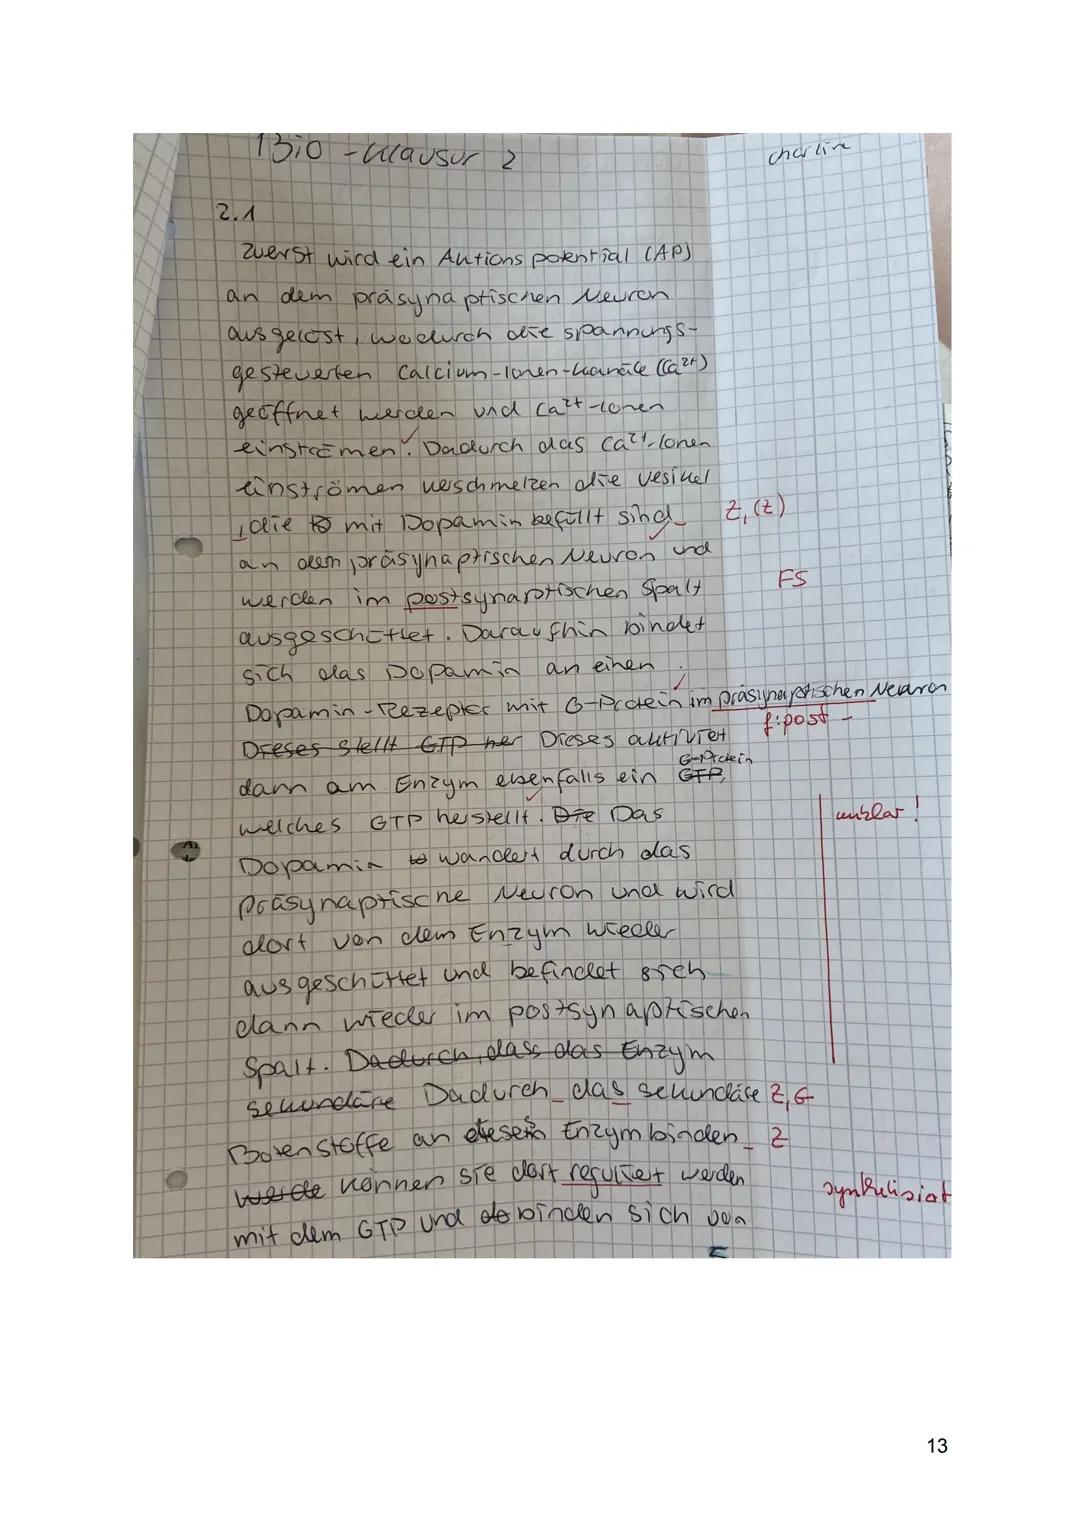 Bio - Klausur 2
Charline
2.1
Zuerst wird ein Aktionspotential (AP)
an dem präsynaptischen Neuron
ausgelöst, wodurch die spannungs-
gesteuerten Calcium-Ionen-Kanäle (Ca²⁺)
geöffnet werden und Ca²⁺-Ionen
einströmen. Dadurch das Ca²⁺-Ionen
einströmen verschmelzen die Vesikel
, die mit Dopamin befüllt sind Z, (Z)
an dem präsynaptischen Neuron und
werden im postsynaptischen Spalt FS
ausgeschüttet. Daraufhin bindet
sich das Dopamin an einen
Dopamin-Rezeptor mit G-Protein im präsynaptischen Neuron
f: post -
Dieses stellt GTP her Dieses aktiviert
G-Protein
dann am Enzym ebenfalls ein GTP,
welches GTP herstellt. Die Das unklar!
Dopamin wandert durch das
präsynaptische Neuron und wird
dort von dem Enzym wieder
ausgeschüttet und befindet sich
dann wieder im postsynaptischen
Spalt. Dadurch, dass das Enzym
sekundäre Dadurch das sekundäre Z, G
Botenstoffe an diesem Enzym binden Z
werde können sie dort reguliert werden synthetisiert
mit dem GTP und binden sich von
13